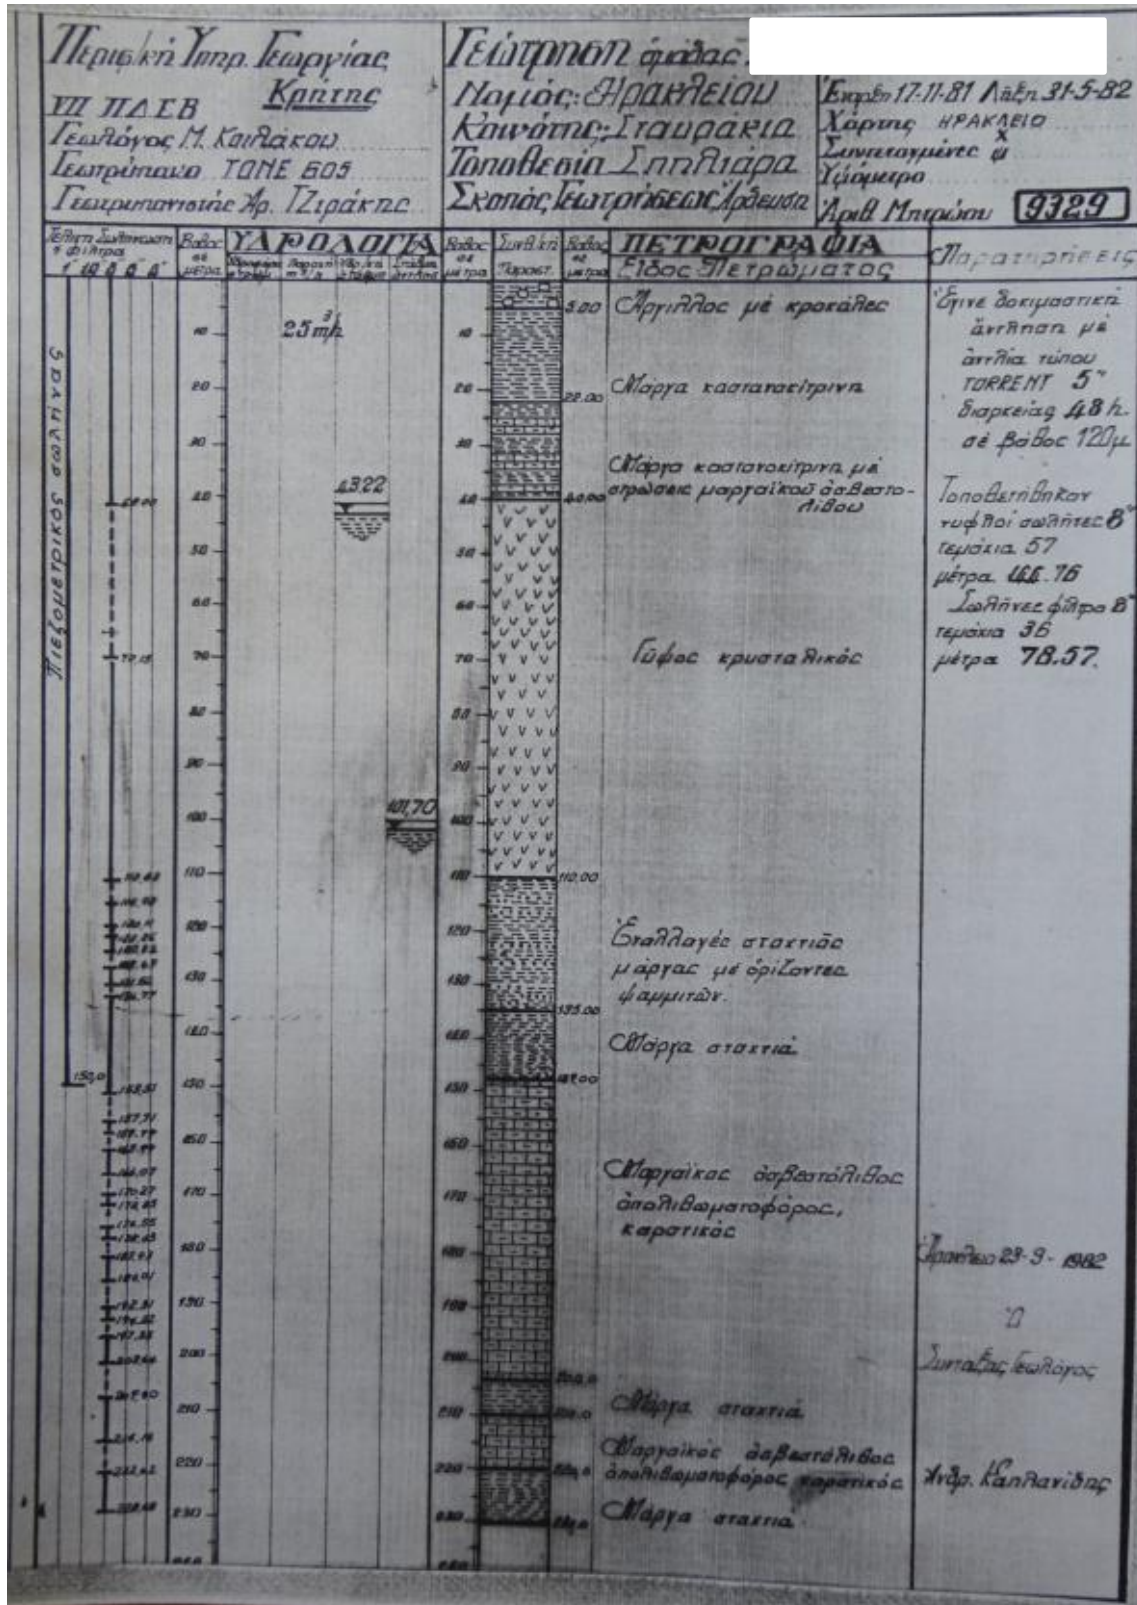 Περιφ/κή Υπηρ. Γεωργίας
Κρήτης
VII ΠΔΕΒ
Γεωλόγος Μ. Κοιλάκου
Γεωτρύπανο ΤΟΝΕ 605
Γεωτρυπανιστής Αρ. Τζιράκης
Γεώτρηση ομάδας
Νομός: Ηρακλείου
Κοινότης: Σταυράκια
Τοποθεσία Σπηλιάρα
Σκοπός Γεωτρήσεως Άρδευση
Έναρξη 17-11-81 Λήξη 31-5-82
Χάρτης ΗΡΑΚΛΕΙΟ
Συντεταγμένες χ φ
Υψόμετρο
Αριθ. Μητρώου 9329
Τελική Σωλήνωση
ή φίλτρα
Βάθος
σε
μέτρα
ΥΔΡΟΛΟΓΙΑ
Παροχή
m³/h
Βάθος
σε
μέτρα
Συνθ/κή
Παραστ.
Βάθος
σε
μέτρα
ΠΕΤΡΟΓΡΑΦΙΑ
Είδος Πετρώματος
Παρατηρήσεις
Πιεζομετρικός σωλήνας
150,0
25 m³/h
43.22
101,70
5.00
Άργιλλος μέ κροκάλες
22.00
Μάργα καστανοκίτρινη
40.00
Μάργα καστανοκίτρινη μέ
στρώσεις μαργαϊκού ασβεστο-
λίθου
Γύψος κρυσταλικός
110,00
Εναλλαγές σταχτιάς
μάργας μέ ορίζοντες
ψαμμιτών.
135.00
Μάργα σταχτιά
Μαργαϊκός ασβεστόλιθος
απολιθωματοφόρος,
καρστικός
Μάργα σταχτιά
Μαργαϊκός ασβεστόλιθος
απολιθωματοφόρος καρστικός
Μάργα σταχτιά
Έγινε δοκιμαστική
άντληση μέ
αντλία τύπου
TORRENT 5"
διαρκείας 48 h.
σέ βάθος 120μ
Τοποθετήθηκαν
τυφλοί σωλήνες 8"
τεμάχια 57
μέτρα
Σωλήνες φίλτρα 8"
τεμάχια 36
μέτρα 78.57.
Ηράκλειο 29-9-1982
Ο
Συντάξας Γεωλόγος
Ανδρ. Καπλανίδης